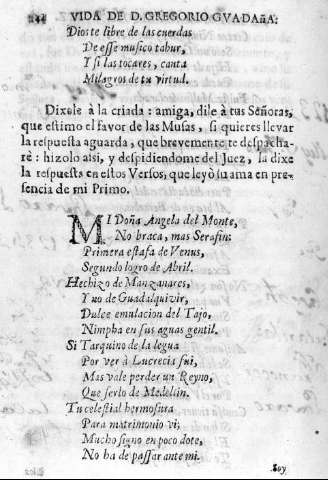 244 VIDA DE D. GREGORIO GVADAñA:
Dios te libre de las cuerdas
De esse musico tahur,
Y si las tocares, canta
Milagros de tu virtud.
Dixele à la criada: amiga, dile à tus Señoras,
que estimo el favor de las Musas, si quieres llevar
la respuesta aguarda, que brevemente te despacha-
rè: hizolo assi, y despidiendome del Juez, la dixe
la respuesta en estos Versos, que leyò su ama en pre-
sencia de mi Primo.
MI Doña Angela del Monte,
No braca, mas Serafin:
Primera estafa de Venus,
Segundo logro de Abril.
Hechizo de Manzanares,
Y uo de Guadalquivir,
Dulce emulacion del Tajo,
Nimpha en sus aguas gentil.
Si Tarquino de la legua
Por ver à Lucrecia fui,
Mas vale perder un Reyno,
Que serlo de Medellin.
Tu celestial hermosura
Para matrimonio vi;
Mucho signo en poco dote,
No ha de passar ante mi.
Soy